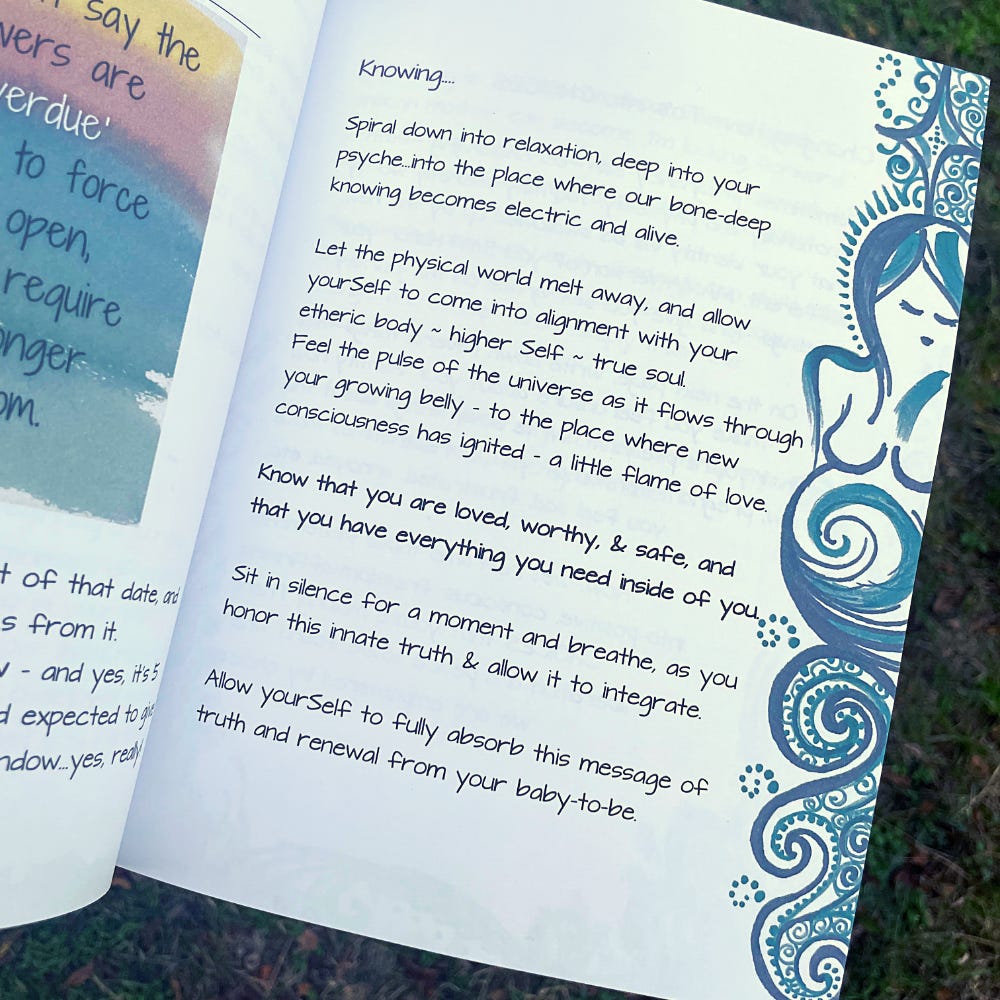 say the
are
verdue'
to force
open,
require
om.
of that date, and
from it.
- and yes, it's 5
expected to
ndow...yes, really
Knowing....
Spiral down into relaxation, deep into your
psyche...into the place where our bone-deep
knowing becomes electric and alive.
Let the physical world melt away, and allow
yourSelf to come into alignment with your
etheric body ~ higher Self ~ true soul.
Feel the pulse of the universe as it flows through
your growing belly - to the place where new
consciousness has ignited - a little flame of love.
Know that you are loved, worthy, & safe, and
that you have everything you need inside of you.
Sit in silence for a moment and breathe, as you
honor this innate truth & allow it to integrate.
Allow yourSelf to fully absorb this message of
truth and renewal from your baby-to-be.